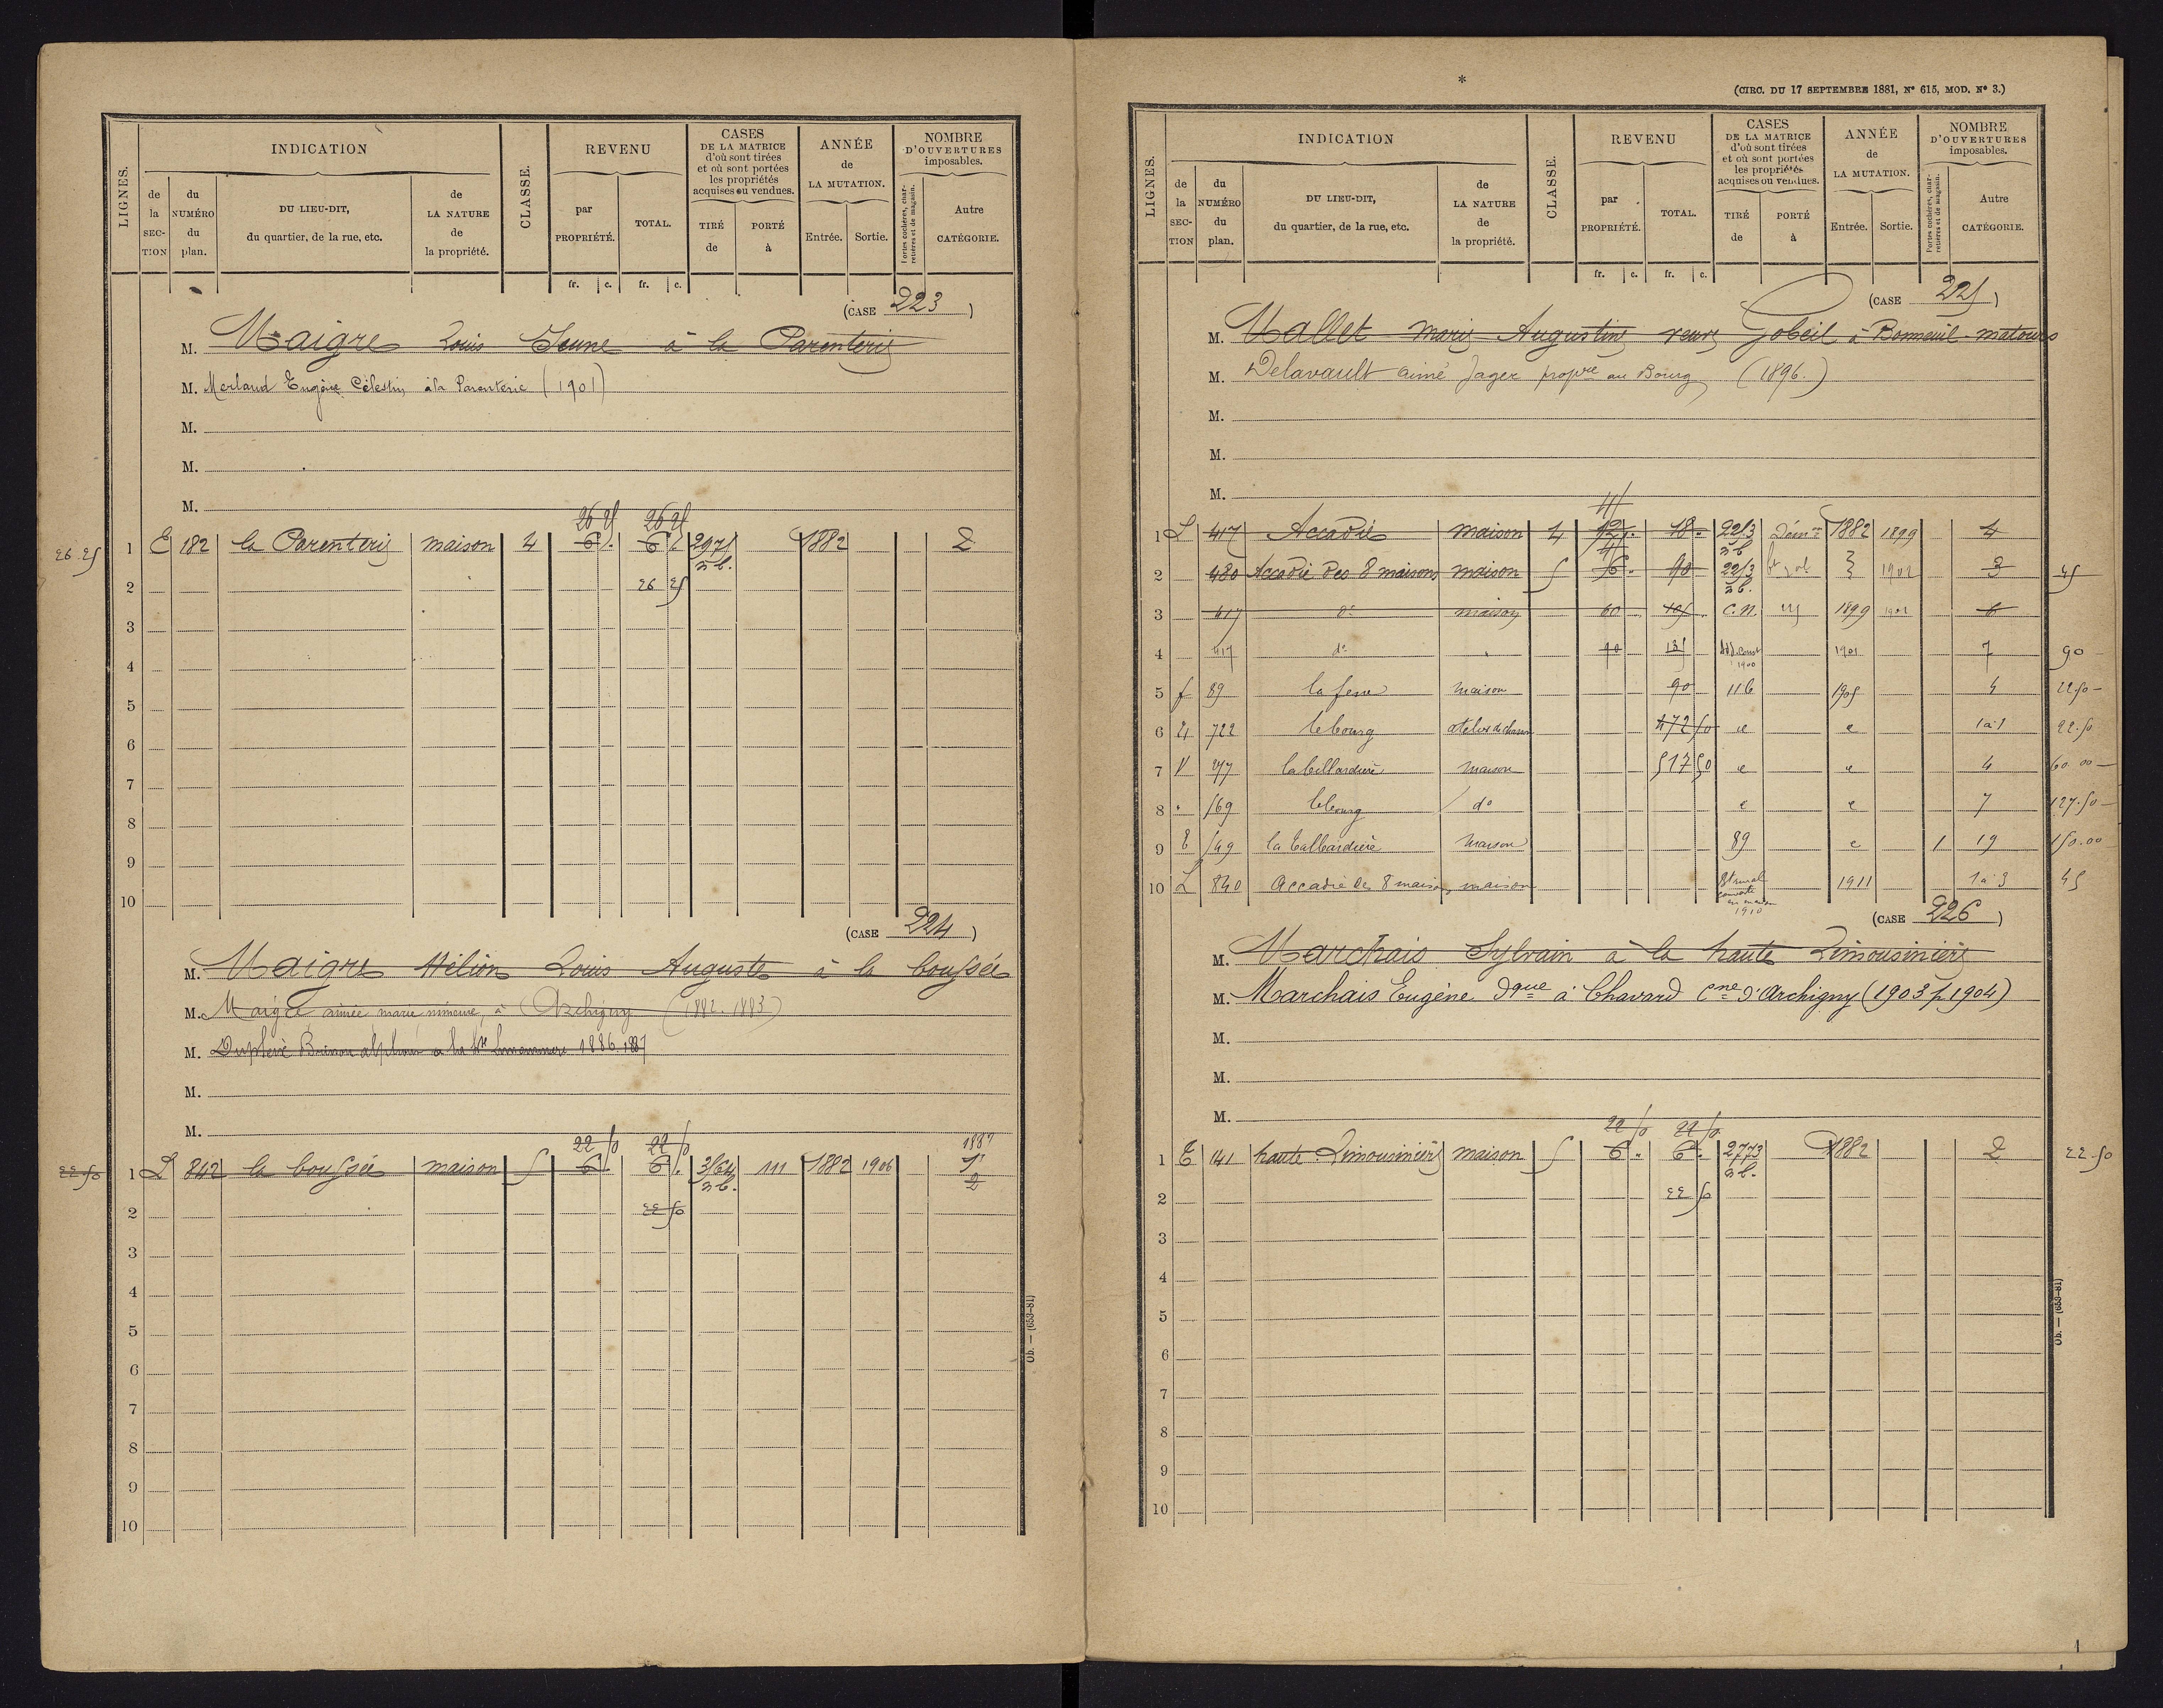 LIGNES.
INDICATION
de la SECTION
du NUMÉRO du plan.
DU LIEU-DIT, du quartier, de la rue, etc.
de LA NATURE de la propriété.
CLASSE.
REVENU
par PROPRIÉTÉ.
TOTAL.
CASES DE LA MATRICE d'où sont tirées et où sont portées les propriétés acquises ou vendues.
TIRÉ de
PORTÉ à
ANNÉE de LA MUTATION.
Entrée.
Sortie.
NOMBRE D'OUVERTURES imposables.
Portes cochères, charretières et de magasin.
Autre CATÉGORIE.
fr. c. fr. c.
(CASE 223)
M. Maigre Louis Jeune à la Parenterie
M. Merland Eugène Célestin à la Parenterie (1901)
M.
M.
M.
26 25 26 25
26.25 1 E 182 la Parenterie maison 4 6 . 6 . 2975 1882 2
n b.
2 26 25
3
4
5
6
7
8
9
10
(CASE 224)
M. Maigre Hélion Louis Auguste à la boussée
M. Maigre aimée marie à Archigny (1882.1883)
M. 1886.1887
M.
M.
22 50 22 50 1887
22.50 1 L 842 la boussée maison 5 6 6 . 3/64 111 1882 1906 2
n b.
2 22 50
3
4
5
6
7
8
9
10
Ob. — (653-81)
*
(CIRC. DU 17 SEPTEMBRE 1881, N° 615, MOD. N° 3.)
LIGNES.
INDICATION
de la SECTION
du NUMÉRO du plan.
DU LIEU-DIT, du quartier, de la rue, etc.
de LA NATURE de la propriété.
CLASSE.
REVENU
par PROPRIÉTÉ.
TOTAL.
CASES DE LA MATRICE d'où sont tirées et où sont portées les propriétés acquises ou vendues.
TIRÉ de
PORTÉ à
ANNÉE de LA MUTATION.
Entrée.
Sortie.
NOMBRE D'OUVERTURES imposables.
Portes cochères, charretières et de magasin.
Autre CATÉGORIE.
fr. c. fr. c.
(CASE 225)
M. Mallet Marie Augustine veuve Gobeil à Bonneuil-matours
M. Delavault aimé Jager propre au Bourg (1896.)
M.
M.
M.
45
1 L 417 Accadie maison 4 12 . 18 . 2253 Dém on 1882 1899 4
n b
2 480 Accadie des 8 maisons maison 5 6 . 90 2253 1902 3 45
n b.
3 417 do maison 60 105 C.N. 1899 1902 6
4 417 do 90 135 Add. Const 1900 1901 7 90
5 f 89 maison 90 116 1905 4 22.50
6 722 le bourg 472 50 1 à 5 22.50
7 V 277 la billardière maison 517 50 4 60.00
8 169 le bourg do 7 127.50
9 E 149 maison 89 1 19 150.00
10 L 840 accadie des 8 maisons maison Bt rural en maison 1910 1911 1 à 3 45
(CASE 226)
M. Marchais Sylvain à la haute Limousinière
M. Marchais Eugène dque à Chavard Cne d'Archigny (1903 p 1904)
M.
M.
M.
22 50 22 50
1 E 141 haute Limousinière maison 5 6 . 6 . 2773 1882 2 22.50
n b.
2 22 50
3
4
5
6
7
8
9
10
Ob. — (653-81)